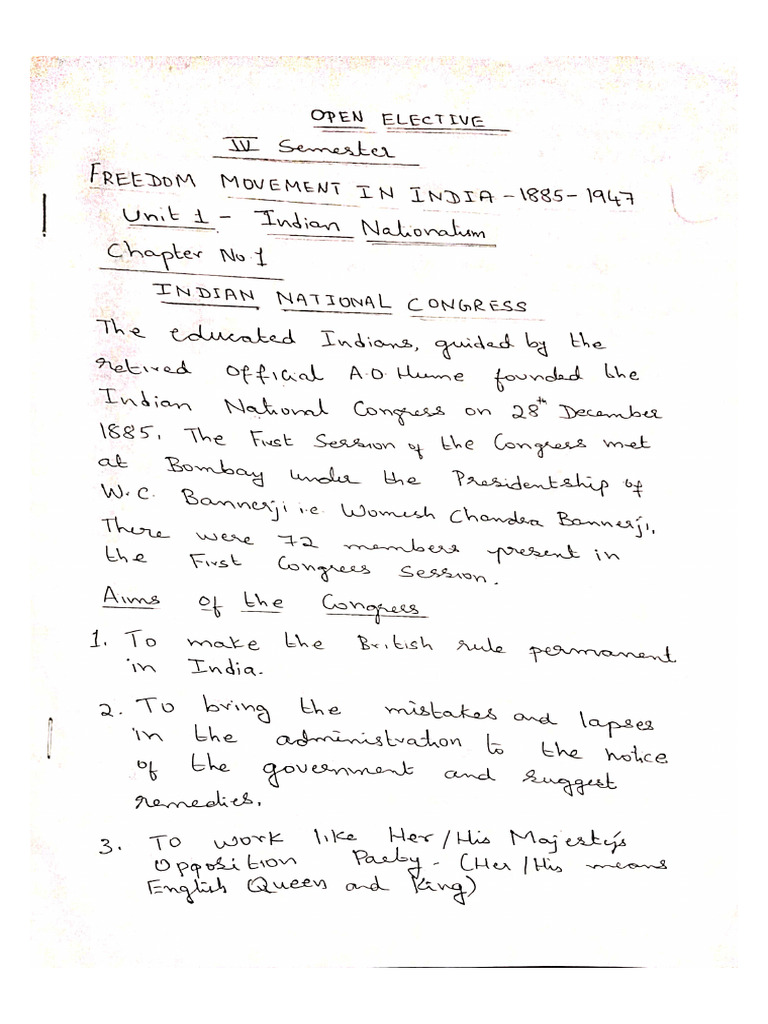 OPEN ELECTIVE
IV Semester
FREEDOM MOVEMENT IN INDIA - 1885 - 1947
Unit 1 - Indian Nationalism
Chapter No.1
INDIAN NATIONAL CONGRESS
The educated Indians, guided by the
retired official A.O. Hume founded the
Indian National Congress on 28th December
1885. The First Session of the Congress met
at Bombay under the Presidentship of
W.C. Bannerji i.e Womesh Chandra Bannerji.
There were 72 members present in
the First Congress Session.
Aims of the Congress
1. To make the British rule permanent
in India.
2. To bring the mistakes and lapses
in the administration to the notice
of the government and suggest
remedies.
3. To work like Her/His Majesty's
Opposition Party - (Her/His means
English Queen and King)